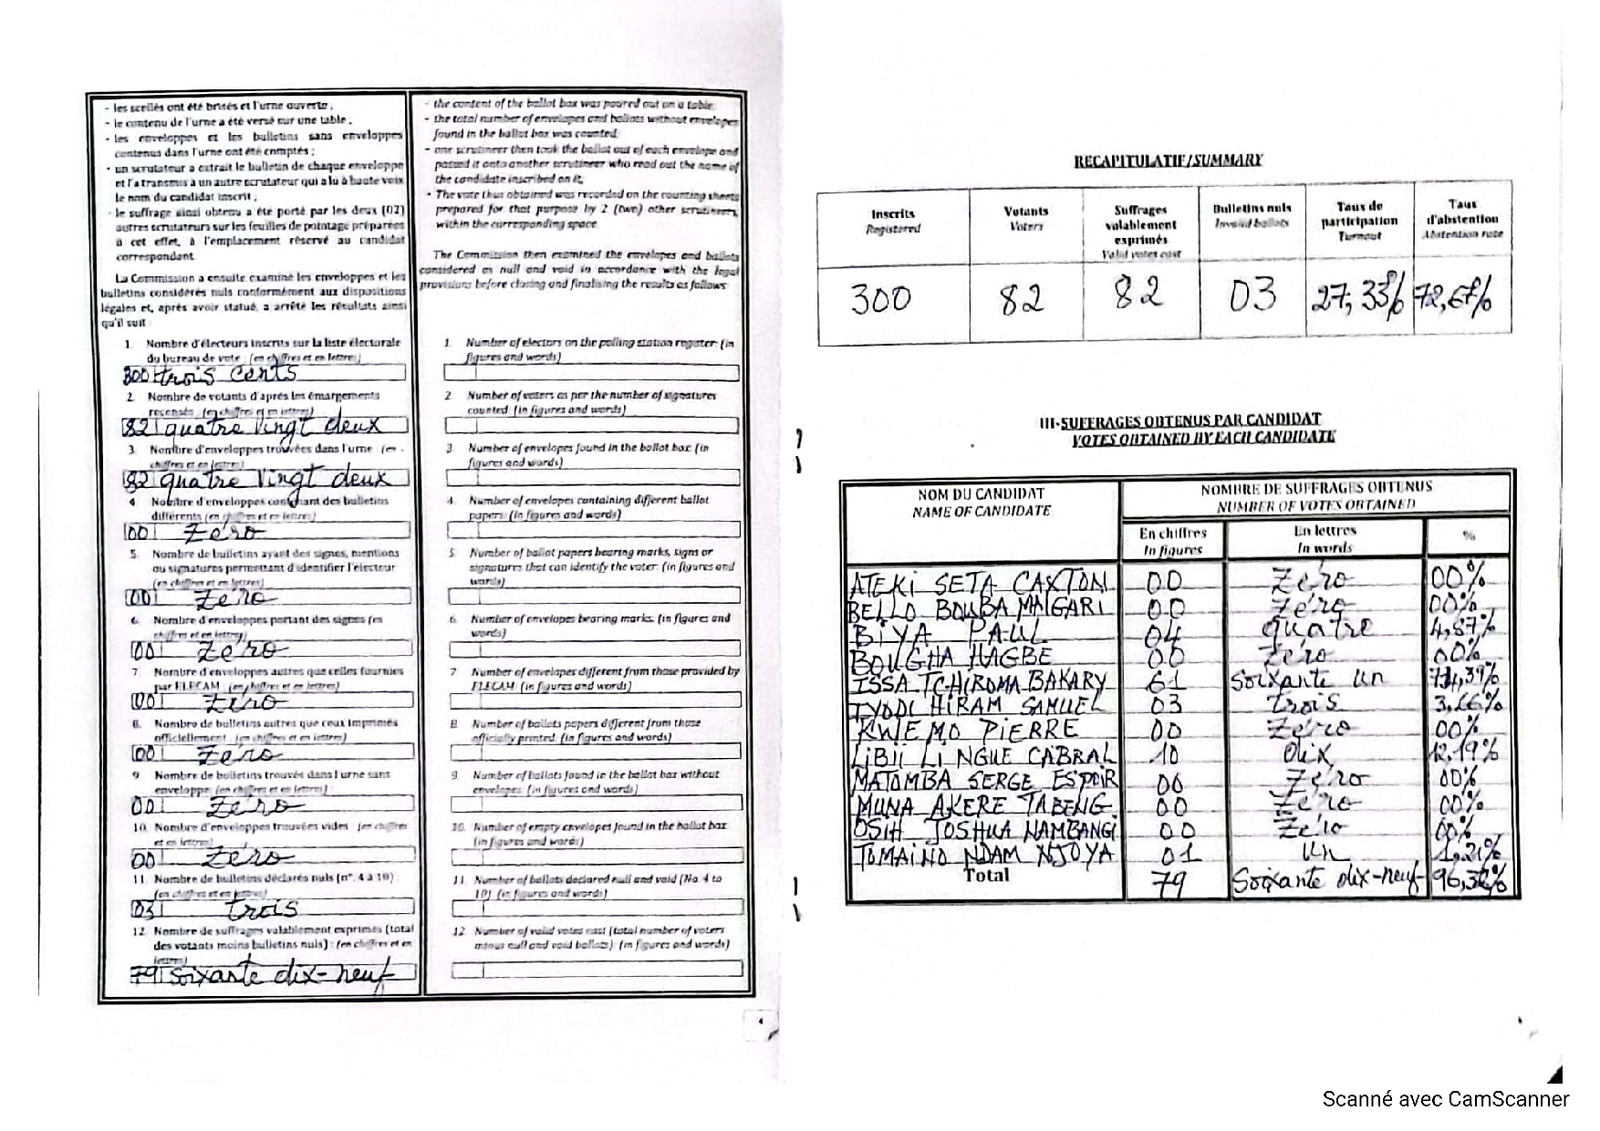 - les scellés ont été brisés et l'urne ouverte ;
- le contenu de l'urne a été versé sur une table ;
- les enveloppes et les bulletins sans enveloppes
contenus dans l'urne ont été comptés ;
- un scrutateur a extrait le bulletin de chaque enveloppe
et l'a transmis à un autre scrutateur qui a lu à haute voix
le nom du candidat inscrit ;
- le suffrage ainsi obtenu a été porté par les deux (02)
autres scrutateurs sur les feuilles de pointage préparées
à cet effet, à l'emplacement réservé au candidat
correspondant.
La Commission a ensuite examiné les enveloppes et les
bulletins considérés nuls conformément aux dispositions
légales et, après avoir statué, a arrêté les résultats ainsi
qu'il suit
1. Nombre d'électeurs inscrits sur la liste électorale
du bureau de vote : (en chiffres et en lettres)
300 trois cents
2. Nombre de votants d'après les émargements
recensés (en chiffres et en lettres)
82 quatre vingt deux
3. Nombre d'enveloppes trouvées dans l'urne (en
chiffres et en lettres)
82 quatre vingt deux
4. Nombre d'enveloppes contenant des bulletins
différents (en chiffres et en lettres)
00 Zéro
5. Nombre de bulletins ayant des signes, mentions
ou signatures permettant d'identifier l'électeur
(en chiffres et en lettres)
00 Zéro
6. Nombre d'enveloppes portant des signes (en
chiffres et en lettres)
00 Zéro
7. Nombre d'enveloppes autres que celles fournies
par ELECAM (en chiffres et en lettres)
00 Zéro
8. Nombre de bulletins autres que ceux imprimés
officiellement (en chiffres et en lettres)
00 Zéro
9. Nombre de bulletins trouvés dans l'urne sans
enveloppe (en chiffres et en lettres)
00 Zéro
10. Nombre d'enveloppes trouvées vides (en chiffres
et en lettres)
00 Zéro
11. Nombre de bulletins déclarés nuls (n°. 4 à 10) :
(en chiffres et en lettres)
03 trois
12. Nombre de suffrages valablement exprimés (total
des votants moins bulletins nuls) : (en chiffres et en
lettres)
79 soixante dix-neuf
- the content of the ballot box was poured out on a table.
- the total number of envelopes and ballots without envelopes
found in the ballot box was counted.
- one scrutineer then took the ballot out of each envelope and
passed it onto another scrutineer who read out the name of
the candidate inscribed on it,
- The vote thus obtained was recorded on the counting sheets
prepared for that purpose by 2 (two) other scrutineers,
within the corresponding space.
The Commission then examined the envelopes and ballots
considered as null and void in accordance with the legal
provisions before closing and finalising the results as follows
1. Number of electors on the polling station register: (in
figures and words)
2. Number of voters as per the number of signatures
counted: (in figures and words)
3. Number of envelopes found in the ballot box: (in
figures and words)
4. Number of envelopes containing different ballot
papers: (in figures and words)
5. Number of ballot papers bearing marks, signs or
signatures that can identify the voter: (in figures and
words)
6. Number of envelopes bearing marks: (in figures and
words)
7. Number of envelopes different from those provided by
ELECAM (in figures and words)
8. Number of ballots papers different from those
officially printed: (in figures and words)
9. Number of ballots found in the ballot box without
envelopes: (in figures and words)
10. Number of empty envelopes found in the ballot box
(in figures and words)
11. Number of ballots declared null and void (No. 4 to
10): (in figures and words)
12. Number of valid votes cast (total number of voters
minus null and void ballots): (in figures and words)
RECAPITULATIF/SUMMARY
Inscrits Registered
Votants Voters
Suffrages valablement exprimés Valid votes cast
Bulletins nuls Invalid ballots
Taux de participation Turnout
Taux d'abstention Abstention rate
300 82 82 03 27,33% 72,67%
III-SUFFRAGES OBTENUS PAR CANDIDAT
VOTES OBTAINED BY EACH CANDIDATE
NOM DU CANDIDAT NOMBRE DE SUFFRAGES OBTENUS
NAME OF CANDIDATE NUMBER OF VOTES OBTAINED
En chiffres En lettres %
In figures In words
ATEKI SETA CAXTON 00 Zéro 00%
BELLO BOUBA MAIGARI 00 Zéro 00%
BIYA PAUL 04 quatre 4,87%
BOUGHA HAGBE 00 Zéro 00%
ISSA TCHIROMA BAKARY 61 soixante un 74,39%
IYODI HIRAM SAMUEL 03 trois 3,66%
KWEMO PIERRE 00 Zéro 00%
LIBII LI NGUE CABRAL 10 dix 12,19%
MATOMBA SERGE ESPOIR 00 Zéro 00%
MUNA AKERE TABENG 00 Zéro 00%
OSIH JOSHUA NAMBANGI 00 Zéro 00%
TOMAINO NDAM NJOYA 01 un 1,21%
Total 79 Soixante dix-neuf 96,32%
Scanné avec CamScanner